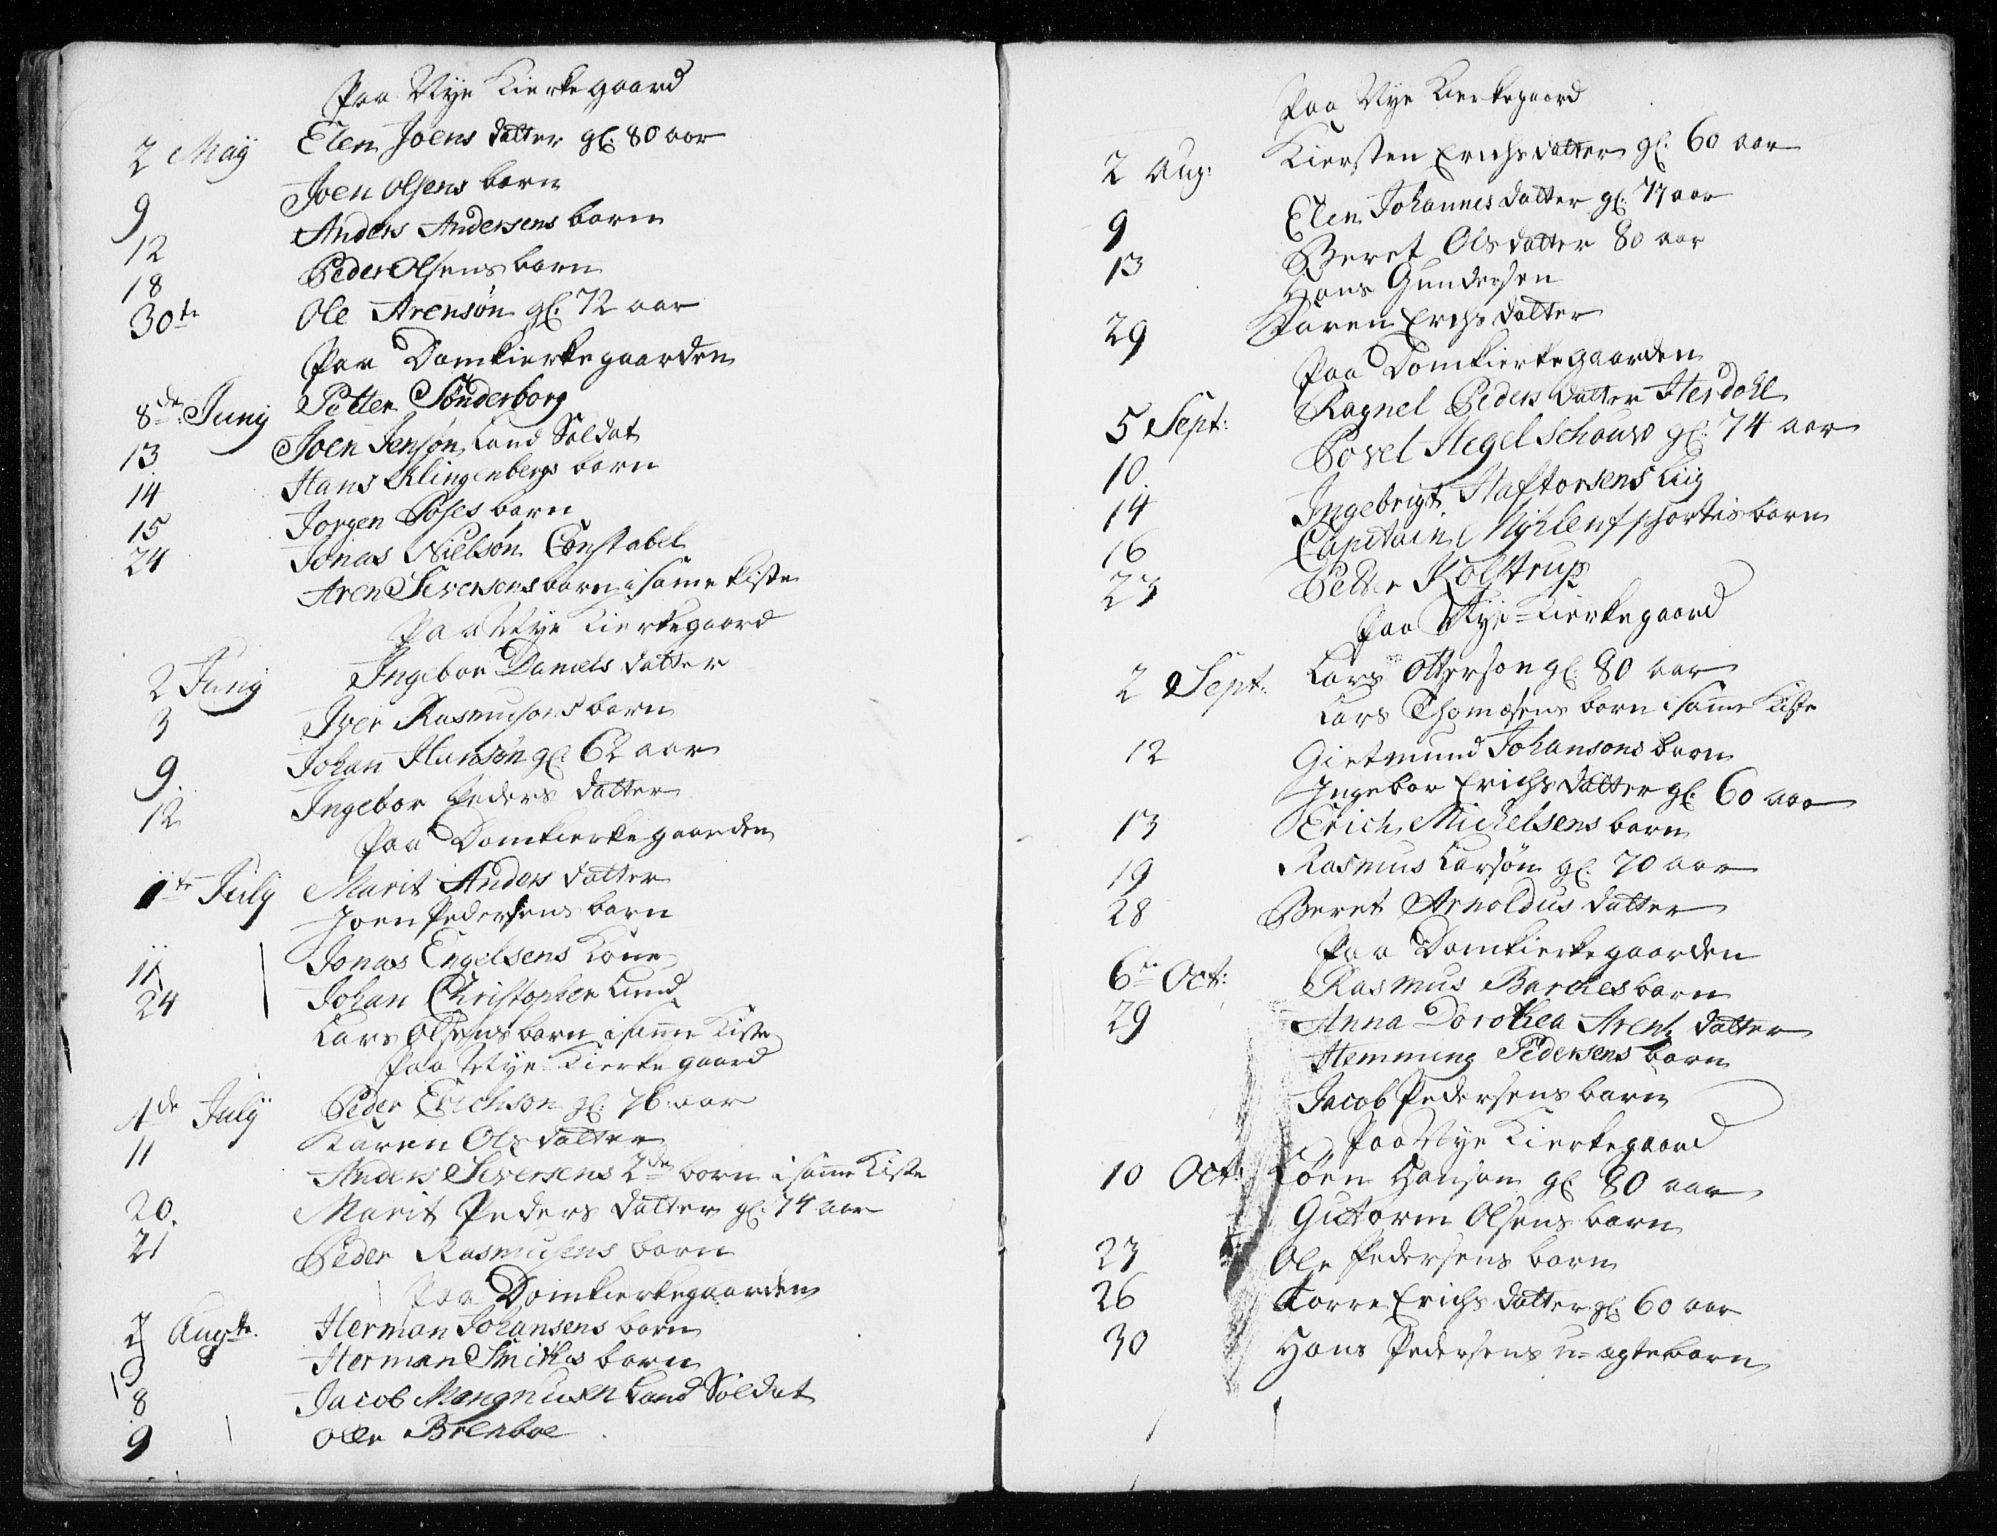 Paa Nye Kierkegaard
2 Maÿ Elen Joens datter gl: 80 aar
9 Joen Olsens barn
12 Anders Andersens barn
18 Peder Olsens barn
30te Ole Arensøn gl: 72 aar
Paa Domkierkegaarden
8de Junÿ Petter Sønderborg
13 Joen Jensøn Land Soldat
14 Hans Klingenbergs barn
15 Jorgen Poses barn
24 Jonas Nielsøn Constabel
Aren Siversens barn i same kiste
Paa Nye Kierkegaard
2 Junÿ Ingebor Daniels datter
3 Iver Rasmusons barn
9. Johan Hansøn gl: 62 aar
12 Ingebor Peders datter
Paa Domkierkegaarden
1te Julÿ Marit Anders datter
Joen Pedersens barn
11 Jonas Engelsens Kone
24 Johan Christopher Lund
Lars Olsens barn i same Kiste
Paa Nye Kierkegaard
4de Julÿ Peder Erichson gl: 76 aar
11 Karen Ols datter
Anders Siversens 2de born i same Kiste
20. Marit Peders datter gl: 74 aar
21 Peder Rasmusens barn
Paa Domkierkegaarden
2 Augte. Herman Johansens barn
Herman Smiths barn
8 Jacob Mangnusen Land Soldat
9 Ole Brenboe
Paa Nye Kierkegaard
2 Aug: Kiersten Erichs datter gl: 60 aar
9 Elen Johannes datter gl: 77 aar
13 Beret Ols datter 80 aar
Hans Gundersen
29 Karen Erichs datter
Paa Domkierkegaarden
5 Sept: Ragnel Peders datter Hesdohl
10. Povel Hegelschouw gl: 74 aar
14 Ingebrigt Haftorsens Liig
16 Capitain Myhlenfphortis barn
23 Peder Kolstrup
Paa Nye Kierkegaard
2 Sept: Lars Otterson gl: 80 aar
Lars Thomæsens barn i same Kiste
12 Gietmund Johansons barn
Ingebor Erichs datter gl: 60 aar
13 Erich Michelsens barn
19 Rasmus Larsøn gl: 70 aar
28 Beret Arnoldus datter
Paa Domkierkegaarden
6te Oct: Rasmus Barches barn
29 Anna Dorothea Arentz datter
Hemming Pedersens barn
Jacob Pedersens barn
Paa Nye Kierkegaard
10 Oct: Søren Hanson gl: 80 aar
Gutorm Olsens barn
23 Ole Pedersens barn
26 Torre Erichs datter gl: 60 aar
30 Hans Pedersens u-ægte barn